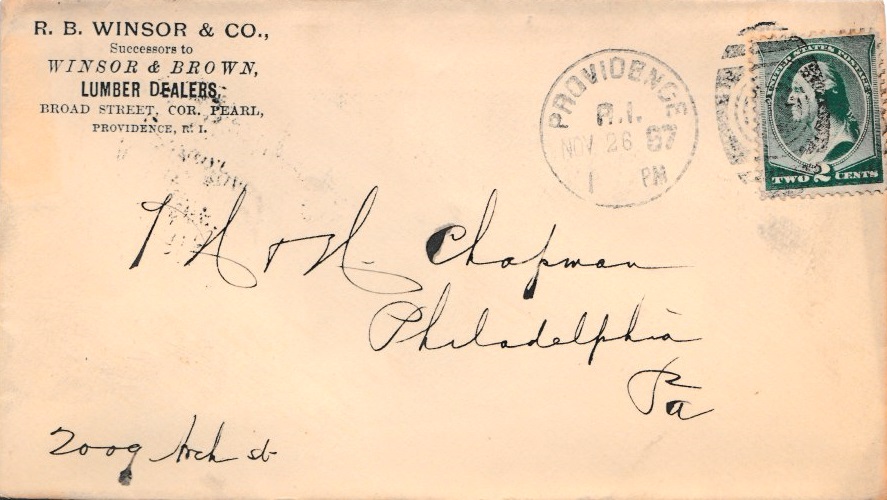 R. B. WINSOR & CO.,
Successors to
WINSOR & BROWN,
LUMBER DEALERS,
BROAD STREET, COR. PEARL,
PROVIDENCE, R. I.
PROVIDENCE
R.I.
NOV 26 87
1 PM
UNITED STATES POSTAGE
TWO 2 CENTS
Chapman
Philadelphia
Pa
2009 Arch st